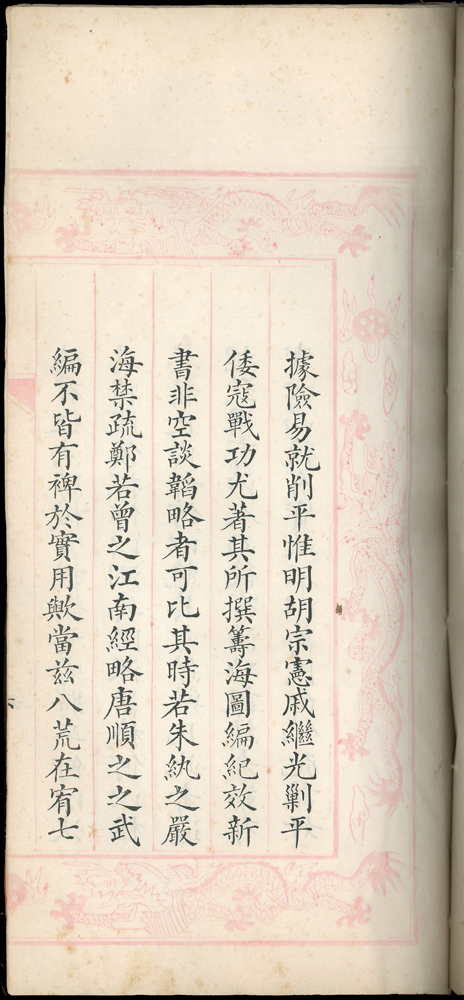 據險易就削平惟明胡宗憲戚繼光剿平
倭寇戰功尤著其所撰籌海圖編紀效新
書非空談韜略者可比其時若朱紈之嚴
海禁疏鄭若曾之江南經略唐順之之武
編不皆有裨於實用歟當茲八荒在宥七